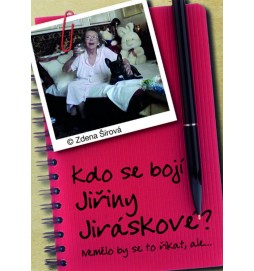 © Zdena Šírová
Kdo se bojí
Jiřiny
Jiráskové?
Nemělo by se to říkat, ale...